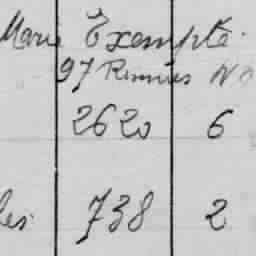 Marie Exempté
97 Rennes No
2620 6
les 738 2